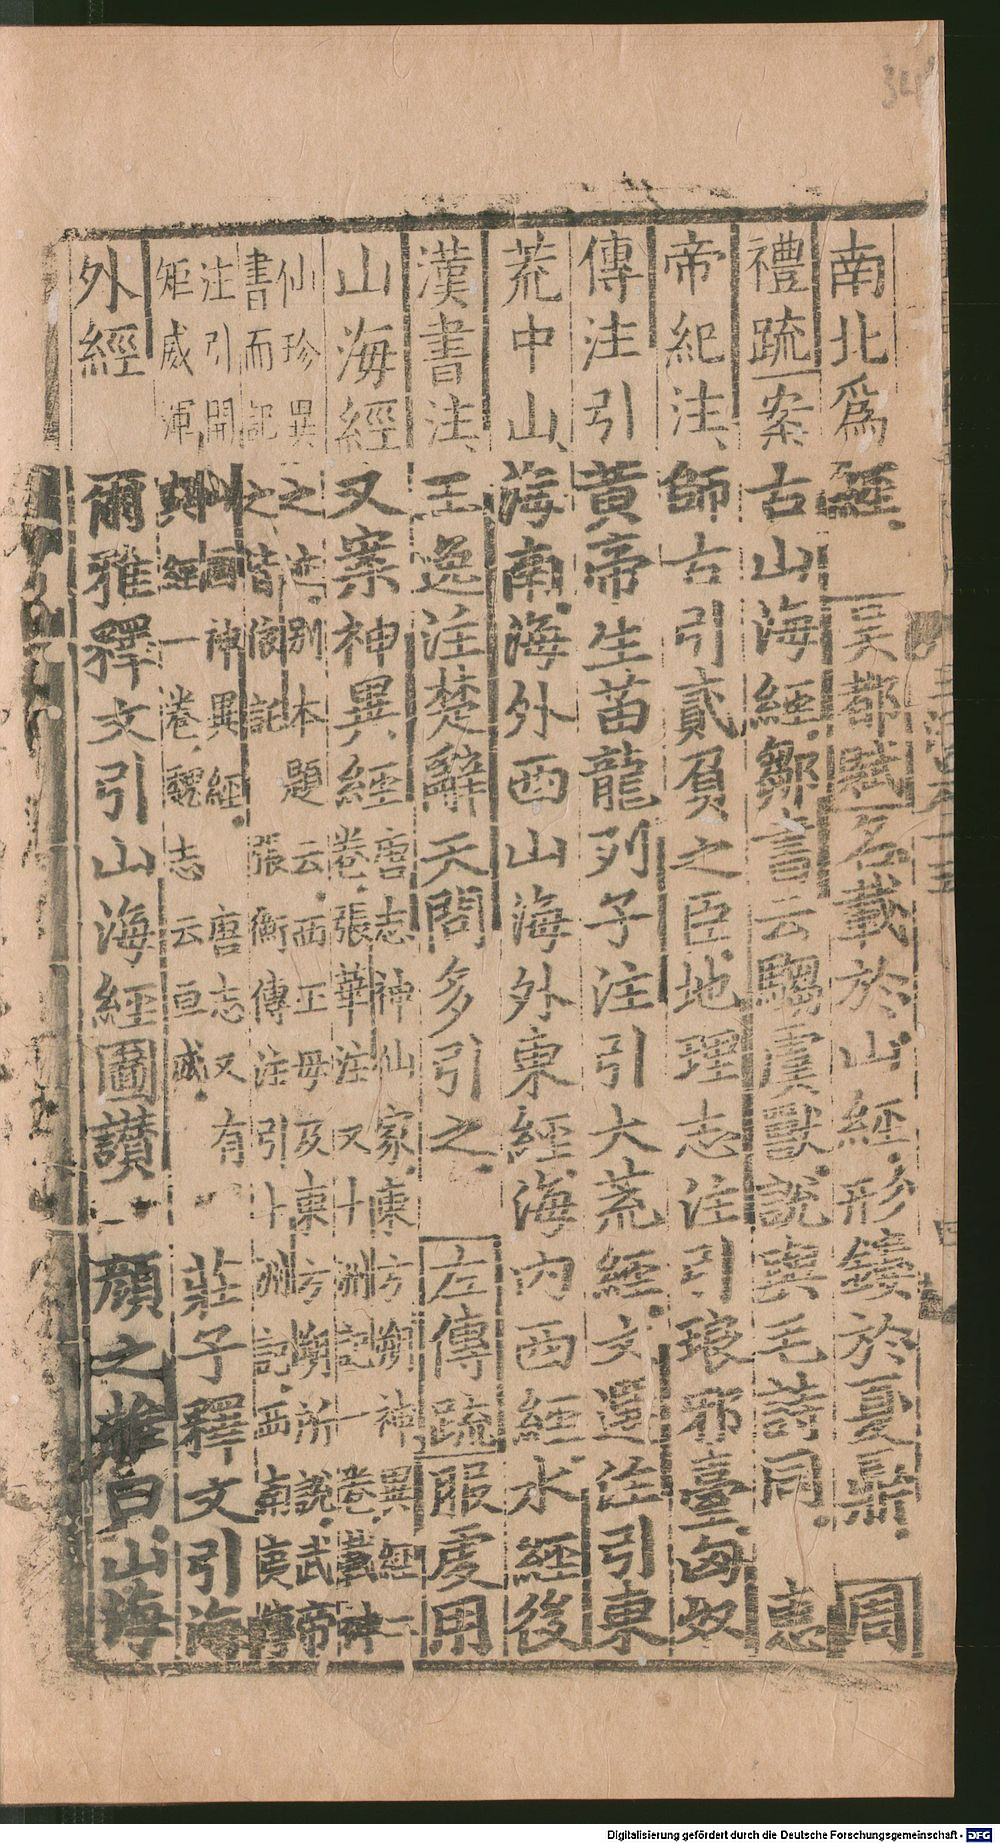 南北爲經吳都賦名載於山經形鏤於夏鼎周
禮疏案古山海經鄒書云騶虞獸說與毛詩同志
帝紀注師古引貳負之臣地理志注引琅邪臺匈奴
傳注引黃帝生苗龍列子注引大荒經文選注引東
荒中山海南海外西山海外東經海內西經水經後
漢書注王逸注楚辭天問多引之左傳疏服虔用
山海經又案神異經
唐志神仙家東方朔神異經二
卷張華注又十洲記一卷
仙珍異之
別本題云西王母及東方朔所說武帝
書而記之皆
張衡傳注引十洲記西南夷傳
注引開
神異經唐志又有
一卷魏志云
莊子釋文引海
外經爾雅釋文引山海經圖讚顏之推曰山海
34
Digitalisierung gefördert durch die Deutsche Forschungsgemeinschaft - DFG